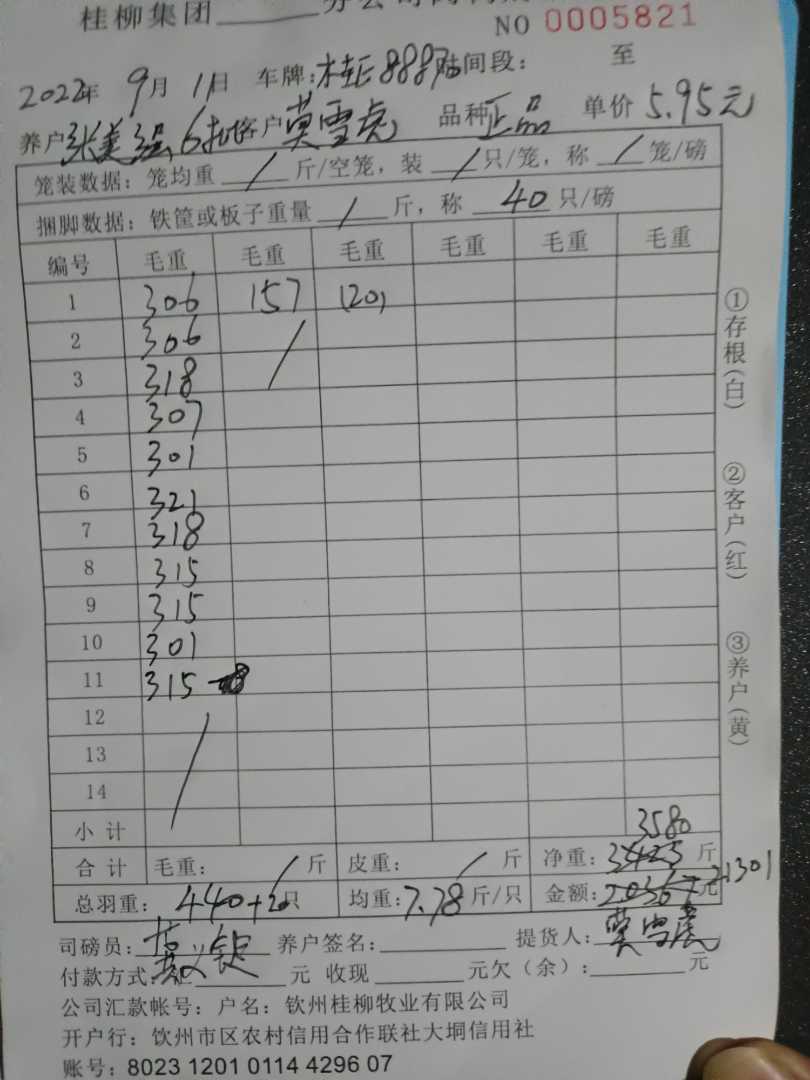 桂柳集团______分公司
NO 0005821
2022年 9月 1日 车牌:桂E88876 时间段: 至
养户张美强6批 客户莫雪虎 品种正品 单价5.95元
笼装数据: 笼均重 / 斤/空笼, 装 / 只/笼, 称 / 笼/磅
捆脚数据: 铁筐或板子重量 / 斤, 称 40 只/磅
编号 毛重 毛重 毛重 毛重 毛重 毛重
1 306 157 (20)
2 306 /
3 318
4 307
5 301
6 321
7 318
8 315
9 315
10 301
11 315
12 /
13
14
小计 3580
合计 毛重: / 斤 皮重: / 斤 净重: 3423 斤
总羽重: 440+20只 均重:7.78斤/只 金额:20367元 21301
司磅员: 养户签名: 提货人:莫雪虎
付款方式: 元 收现 元欠(余): 元
公司汇款帐号: 户名: 钦州桂柳牧业有限公司
开户行: 钦州市区农村信用合作联社大垌信用社
账号: 8023 1201 0114 4296 07
①存根(白)
②客户(红)
③养户(黄)